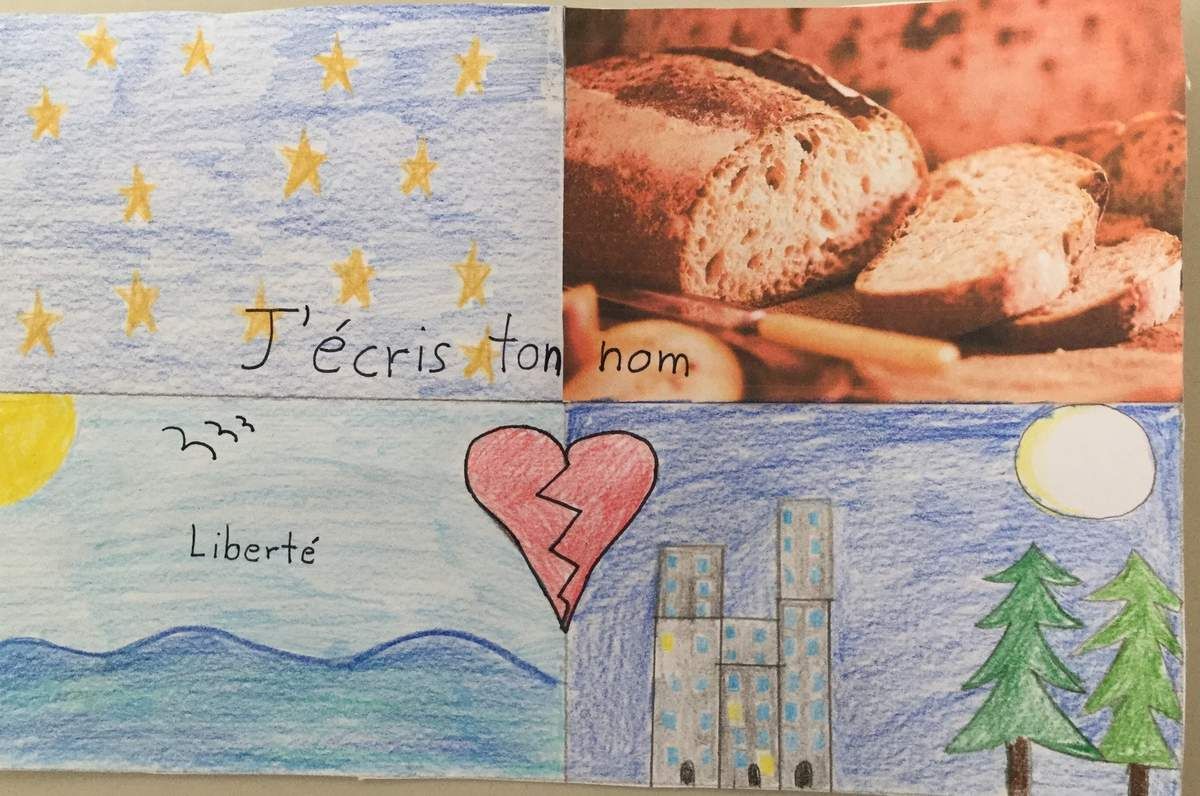 J'écris ton nom
Liberté